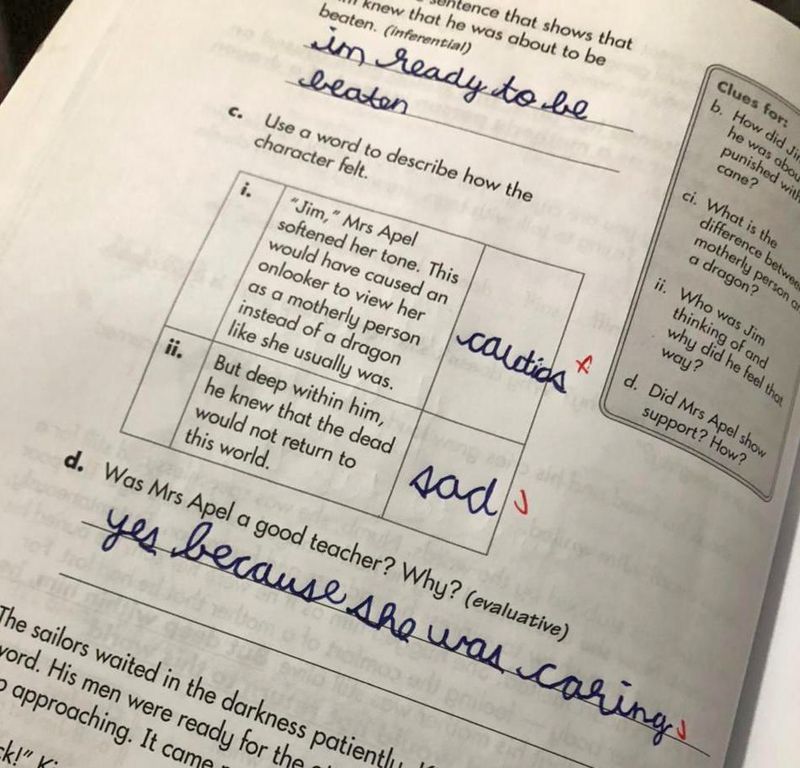 sentence that shows that
knew that he was about to be
beaten. (inferential)
im ready to be
beaten
c. Use a word to describe how the
character felt.
i.
"Jim," Mrs Apel
softened her tone. This
would have caused an
onlooker to view her
as a motherly person
instead of a dragon
like she usually was.
ii.
But deep within him,
he knew that the dead
would not return to
this world.
sad
d. Was Mrs Apel a good teacher? Why? (evaluative)
yes because she was caring
The sailors waited in the darkness patiently.
His men were ready for the
approaching. It came
Clues for:
b. How did
he was
punished with
cane?
ci. What is the
difference
motherly person
a dragon?
ii. Who was Jim
thinking of and
why did he feel that
way?
d. Did Mrs Apel show
support? How?